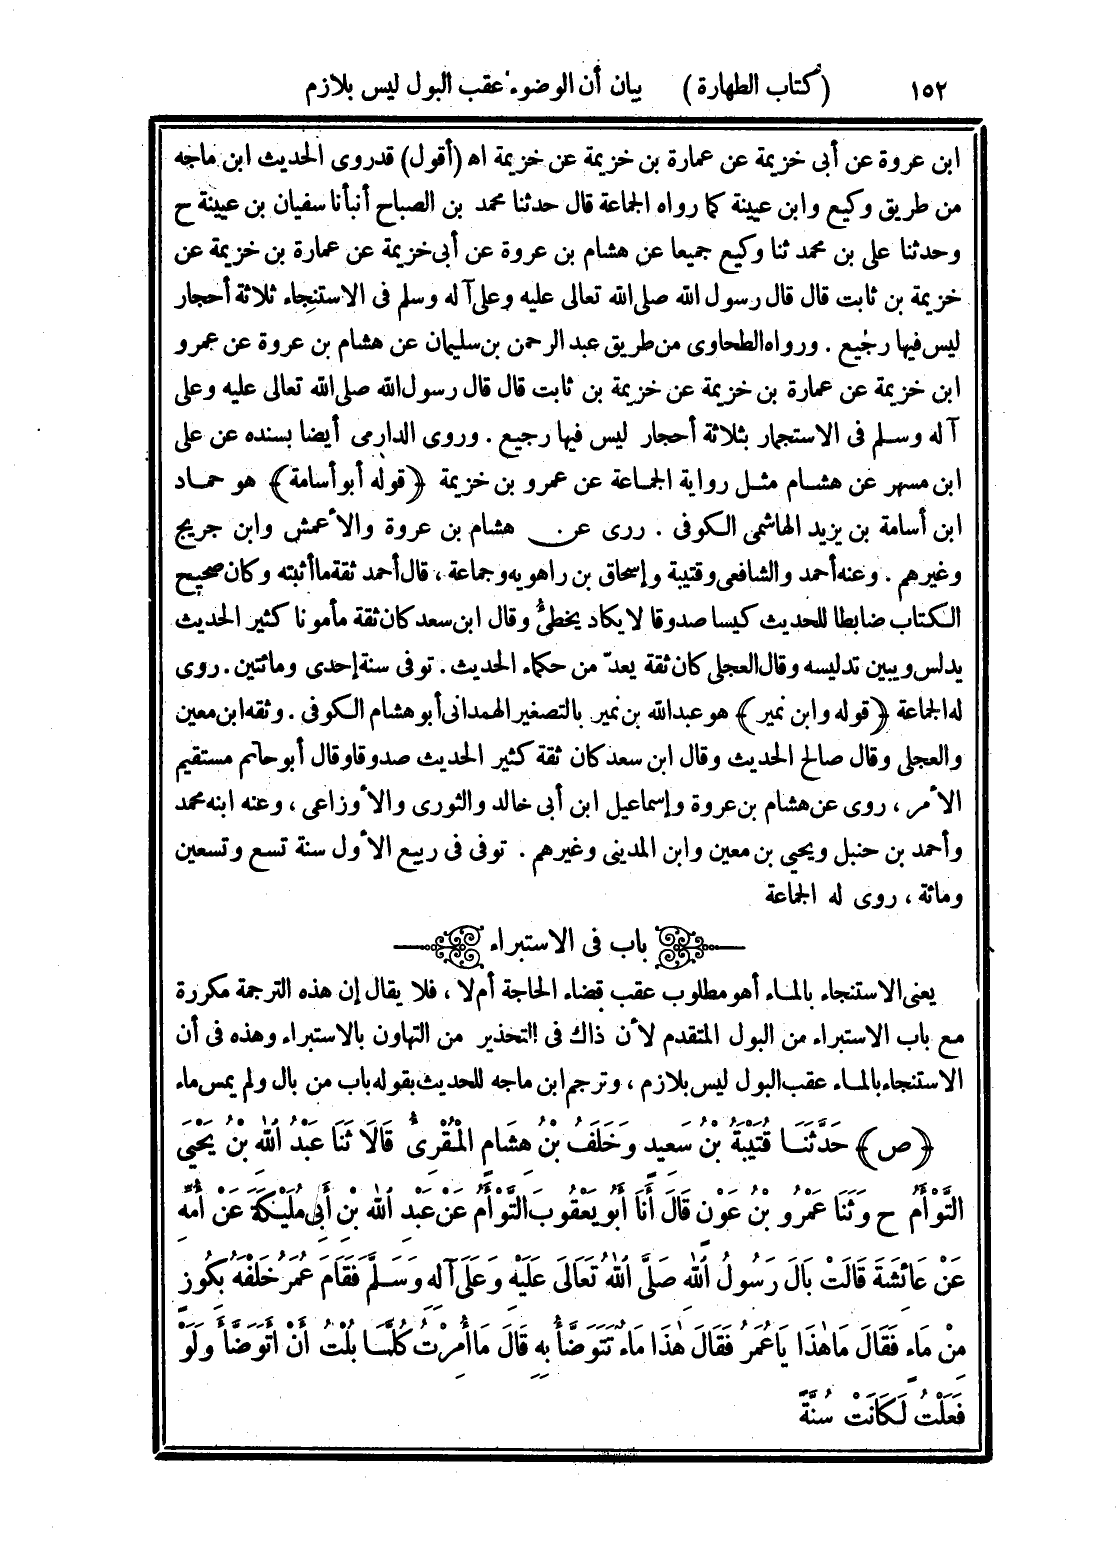 ١٥٢ (كتاب الطهارة) بيان أن الوضوء عقب البول ليس بلازم
ابن عروة عن أبى خزيمة عن عمارة بن خزيمة عن خزيمة اه (أقول) قدروى الحديث ابن ماجه
من طريق وكيع وابن عيينة كما رواه الجماعة قال حدثنا محمد بن الصباح أنبأنا سفيان بن عيينة ح
وحدثنا على بن محمد ثنا وكيع جميعا عن هشام بن عروة عن أبى خزيمة عن عمارة بن خزيمة عن
خزيمة بن ثابت قال قال رسول الله صلى الله تعالى عليه وعلى آله وسلم فى الاستنجاء ثلاثة أحجار
ليس فيها رجيع . ورواه الطحاوى من طريق عبد الرحمن بن سليمان عن هشام بن عروة عن عمرو
ابن خزيمة عن عمارة بن خزيمة عن خزيمة بن ثابت قال قال رسول الله صلى الله تعالى عليه وعلى
آله وسلم فى الاستجمار بثلاثة أحجار ليس فيها رجيع . وروى الدارمى أيضا بسنده عن على
ابن مسهر عن هشام مثل رواية الجماعة عن عمرو بن خزيمة ﴿قوله أبو أسامة﴾ هو حماد
ابن أسامة بن يزيد الهاشمى الكوفى . روى عن هشام بن عروة والأعمش وابن جريج
وغيرهم . وعنه أحمد والشافعى وقتيبة وإسحاق بن راهويه وجماعة ، قال أحمد ثقة ما أثبته وكان صحيح
الكتاب ضابطا للحديث كيسا صدوقا لا يكاد يخطئ وقال ابن سعد كان ثقة مأمونا كثير الحديث
يدلس ويبين تدليسه وقال العجلى كان ثقة يعدّ من حكماء الحديث . توفى سنة إحدى ومائتين . روى
له الجماعة ﴿قوله وابن نمير﴾ هو عبدالله بن نمير بالتصغير الهمدانى أبو هشام الكوفى . وثقه ابن معين
والعجلى وقال صالح الحديث وقال ابن سعد كان ثقة كثير الحديث صدوقا وقال أبو حاتم مستقيم
الأمر ، روى عن هشام بن عروة وإسماعيل ابن أبى خالد والثورى والأوزاعى ، وعنه ابنه محمد
وأحمد بن حنبل ويحيى بن معين وابن المدينى وغيرهم . توفى فى ربيع الأول سنة تسع وتسعين
ومائة ، روى له الجماعة
باب فى الاستبراء
يعنى الاستنجاء بالماء أهو مطلوب عقب قضاء الحاجة أم لا ، فلا يقال إن هذه الترجمة مكررة
مع باب الاستبراء من البول المتقدم لأن ذاك فى التحذير من التهاون بالاستبراء وهذه فى أن
الاستنجاء بالماء عقب البول ليس بلازم ، وترجم ابن ماجه للحديث بقوله باب من بال ولم يمس ماء
﴿ص﴾ حَدَّثَنَا قُتَيْبَةُ بْنُ سَعِيدٍ وَخَلَفُ بْنُ هِشَامٍ الْمُقْرِئُ قَالَا ثَنَا عَبْدُ اللهِ بْنُ يَحْيَى
التَّوْأَمُ ح وَثَنَا عَمْرُو بْنُ عَوْنٍ قَالَ أَنَا أَبُو يَعْقُوبَ التَّوْأَمُ عَنْ عَبْدِ اللهِ بْنِ أَبِى مُلَيْكَةَ عَنْ أُمِّهِ
عَنْ عَائِشَةَ قَالَتْ بَالَ رَسُولُ اللهِ صَلَّى اللهُ تَعَالَى عَلَيْهِ وَعَلَى آلِهِ وَسَلَّمَ فَقَامَ عُمَرُ خَلْفَهُ بِكُوزٍ
مِنْ مَاءٍ فَقَالَ مَا هٰذَا يَا عُمَرُ فَقَالَ هٰذَا مَاءٌ تَتَوَضَّأُ بِهِ قَالَ مَا أُمِرْتُ كُلَّمَا بُلْتُ أَنْ أَتَوَضَّأَ وَلَوْ
فَعَلْتُ لَكَانَتْ سُنَّةً